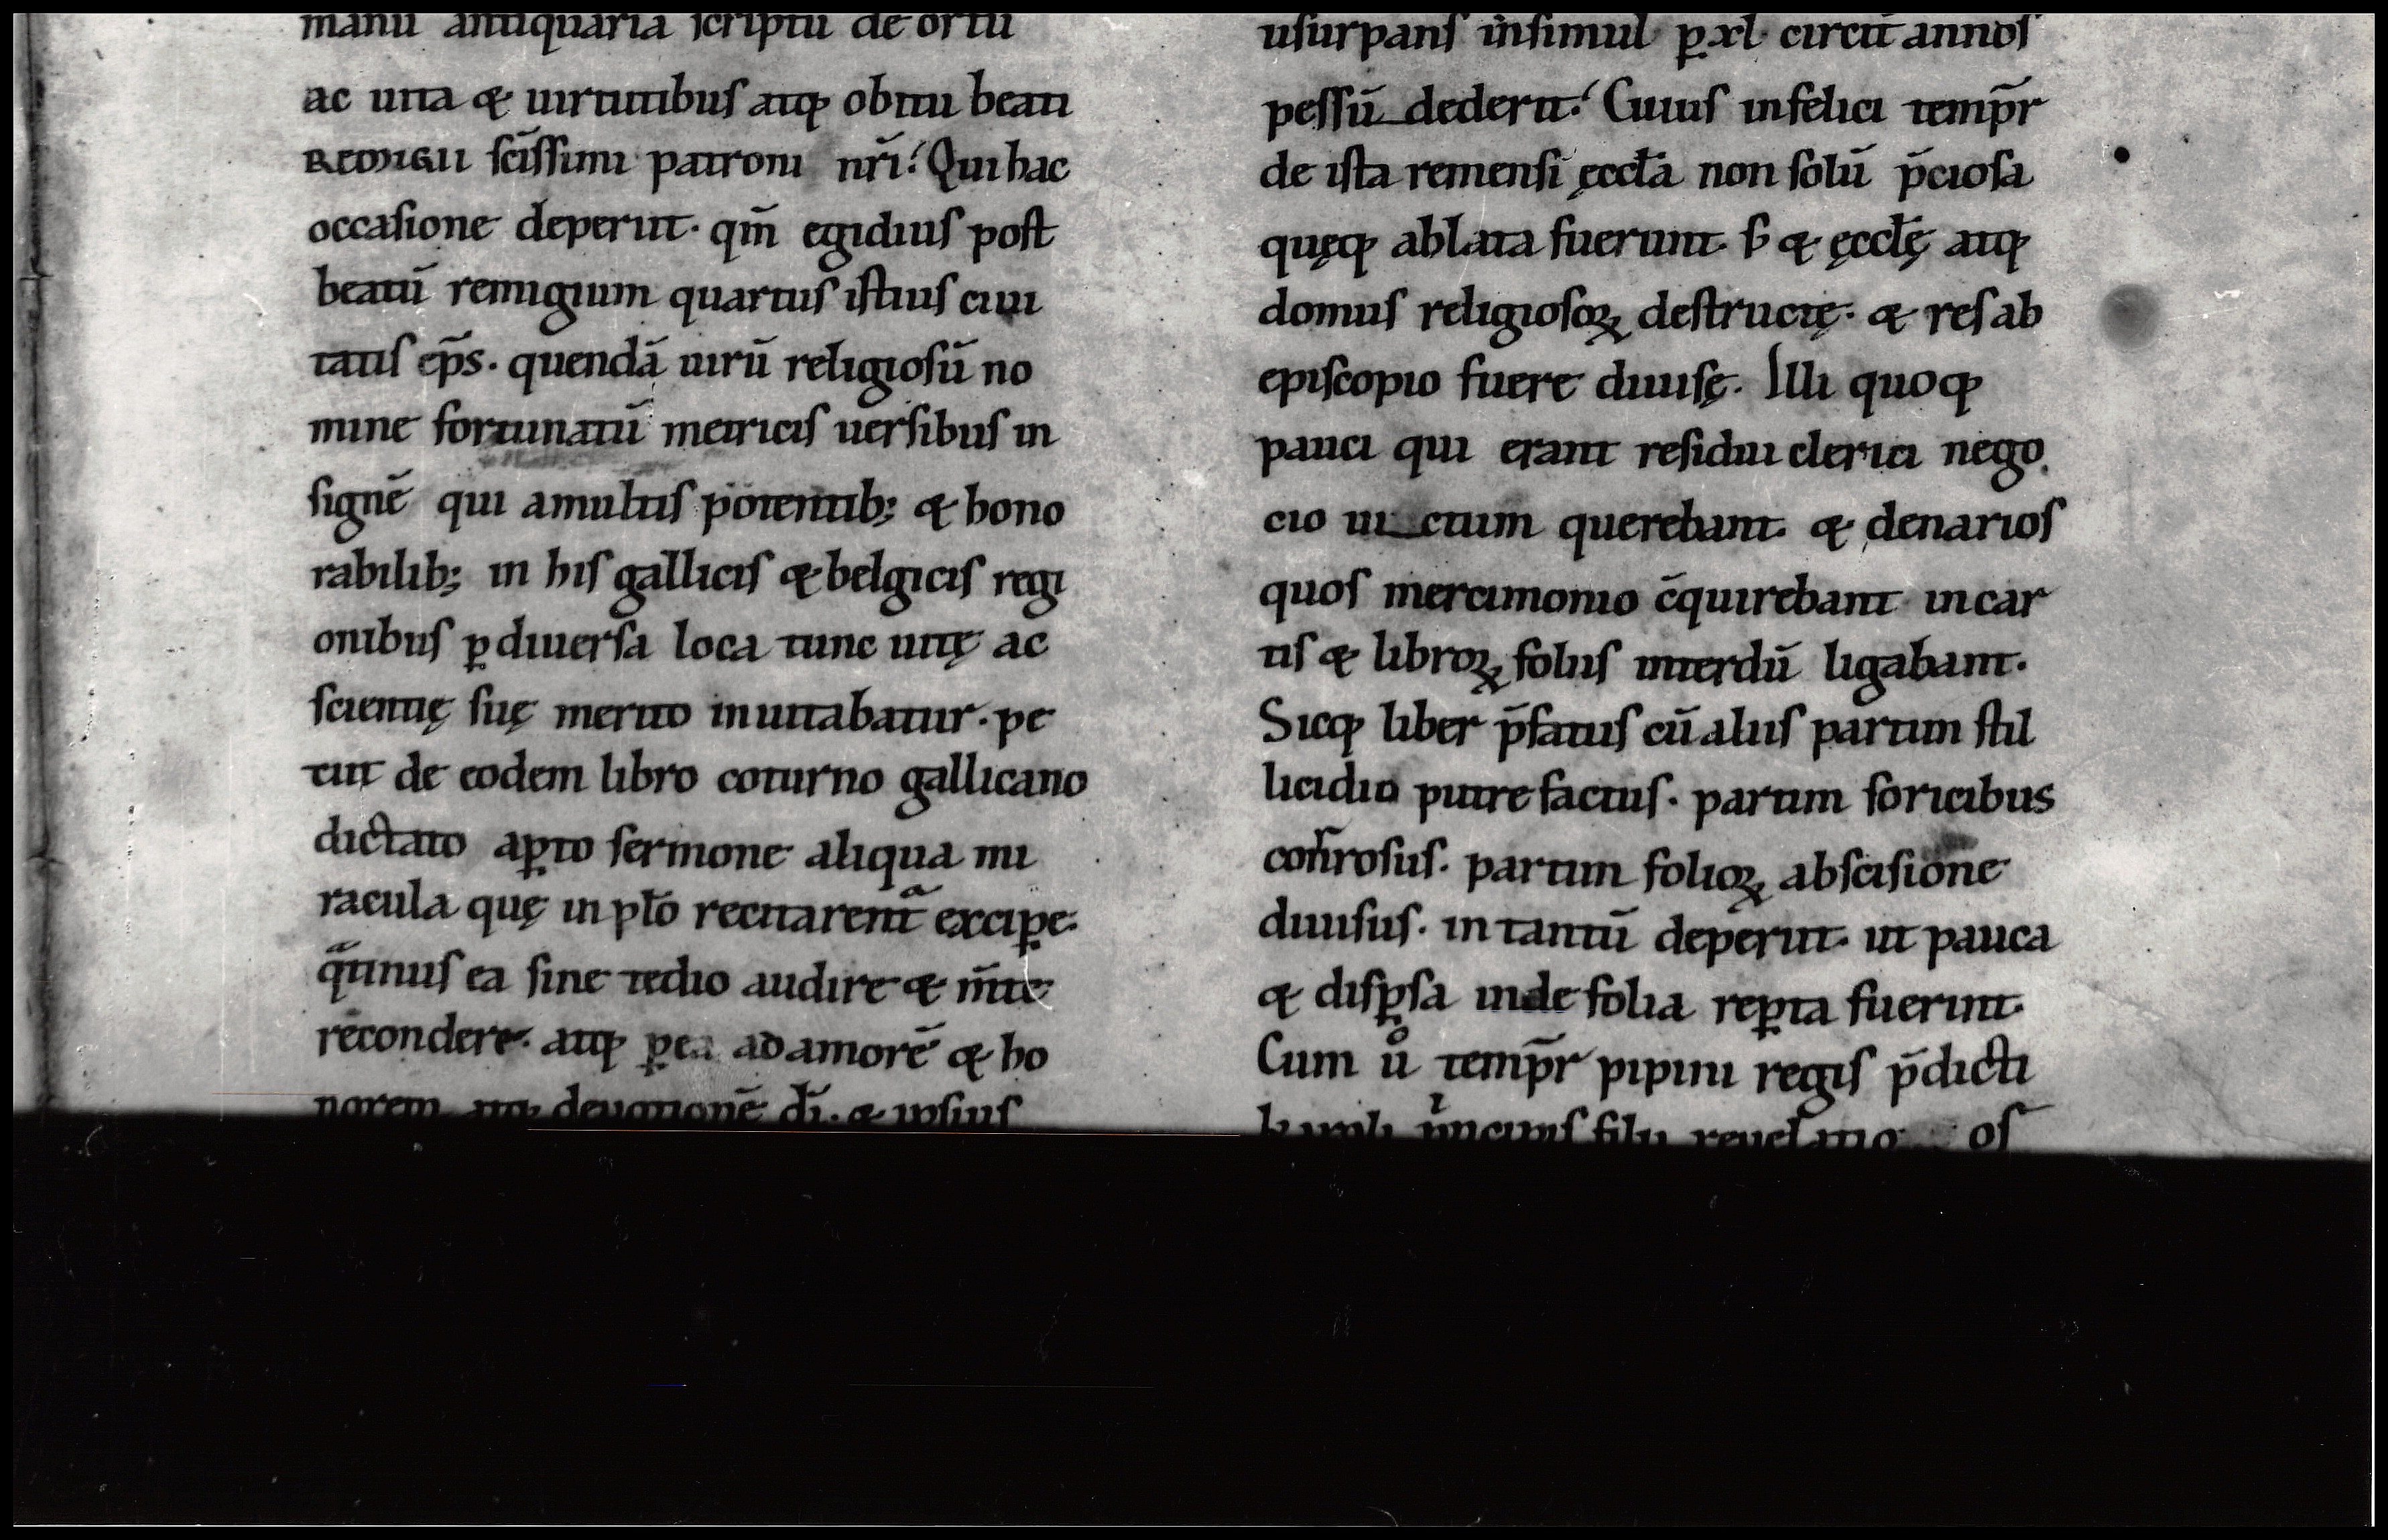 manu antiquaria scriptū de ortu
ac uita & uirtutibus atq; obitu beati
REMIGII sc̄issimi patroni nr̄i. Qui hac
occasione deperiit. qm̄ egidius post
beatū remigium quartus istius ciui
tatis ep̄s. quendā uirū religiosū no
mine fortunatū metricis uersibus in
signē qui a multis potentib; & hono
rabilib; in his gallicis & belgicis regi
onibus ꝑ diuersa loca tunc uitę ac
scientię suę merito inuitabatur. pe
tiit de eodem libro coturno gallicano
dictato aꝑto sermone aliqua mi
racula quę in pl̄o recitarent̄ excipe.
qͣtinus ea sine tedio audire & m̄te
recondere. atq; ꝑ ea ad amorē & ho
norem atq; deuotionē dī. & ipsius
usurpans insimul ꝑ xl. circit̄ annos
pessū dederit. Cuius infelici temp̄r
de ista remensi ęccl̄a non solū p̄ciosa
quęq; ablata fuerunt. s; & ęccl̄ę atq;
domus religiosoꝝ destructę. & res ab
episcopio fuere diuisę. Illi quoq;
pauci qui erant residui clerici nego
cio uictum querebant. & denarios
quos mercimonio c̄quirebant in car
tis & libroꝝ foliis interdū ligabant.
Sicq; liber p̄fatus cū aliis partim stil
licidio putrefactus. partim soricibus
corrosus. partim folioꝝ abscisione
diuisus. in tantū deperiit. ut pauca
& disꝑsa inde folia reꝑta fuerint.
Cum uͦ temp̄r pipini regis p̄dicti
karoli pͥncipis filii